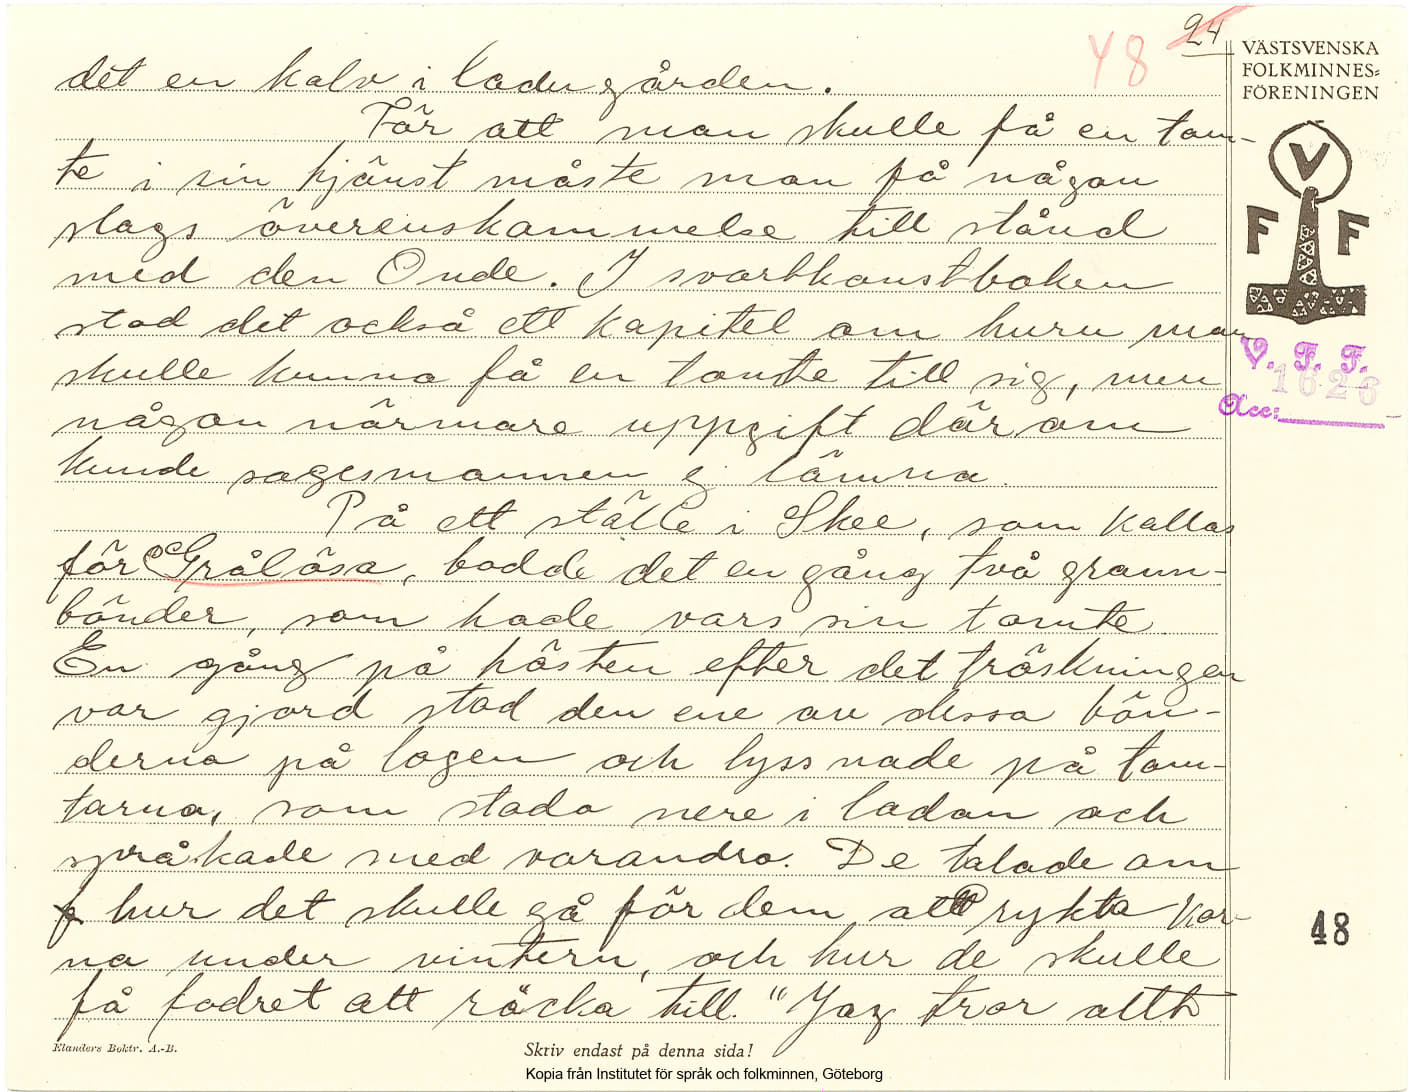 24
48
VÄSTSVENSKA
FOLKMINNES=
FÖRENINGEN
V
F F
V. F. F.
1626
Acc:
det en kalv i ladugården.
För att man skulle få en tom-
te i sin tjänst måste man få någon
slags överenskommelse till stånd
med den Onde. I svartkonstboken
stod det också ett kapitel om huru man
skulle kunna få en tomte till sig, men
någon närmare uppgift därom
kunde sagesmannen ej lämna.
På ett ställe i Skee, som kallas
för Grålösa, bodde det en gång två grann-
bönder, som hade vars sin tomte.
En gång på hösten efter det tröskningen
var gjord stod den ene av dessa bön-
derna på logen och lyssnade på tom-
tarna, som stodo nere i ladan och
språkade med varandra. De talade om
hur det skulle gå för dem att rykta kor-
na under vintern, och hur de skulle
få fodret att räcka till. "Jag tror atth
48
Elanders Boktr. A.-B.
Skriv endast på denna sida!
Kopia från Institutet för språk och folkminnen, Göteborg